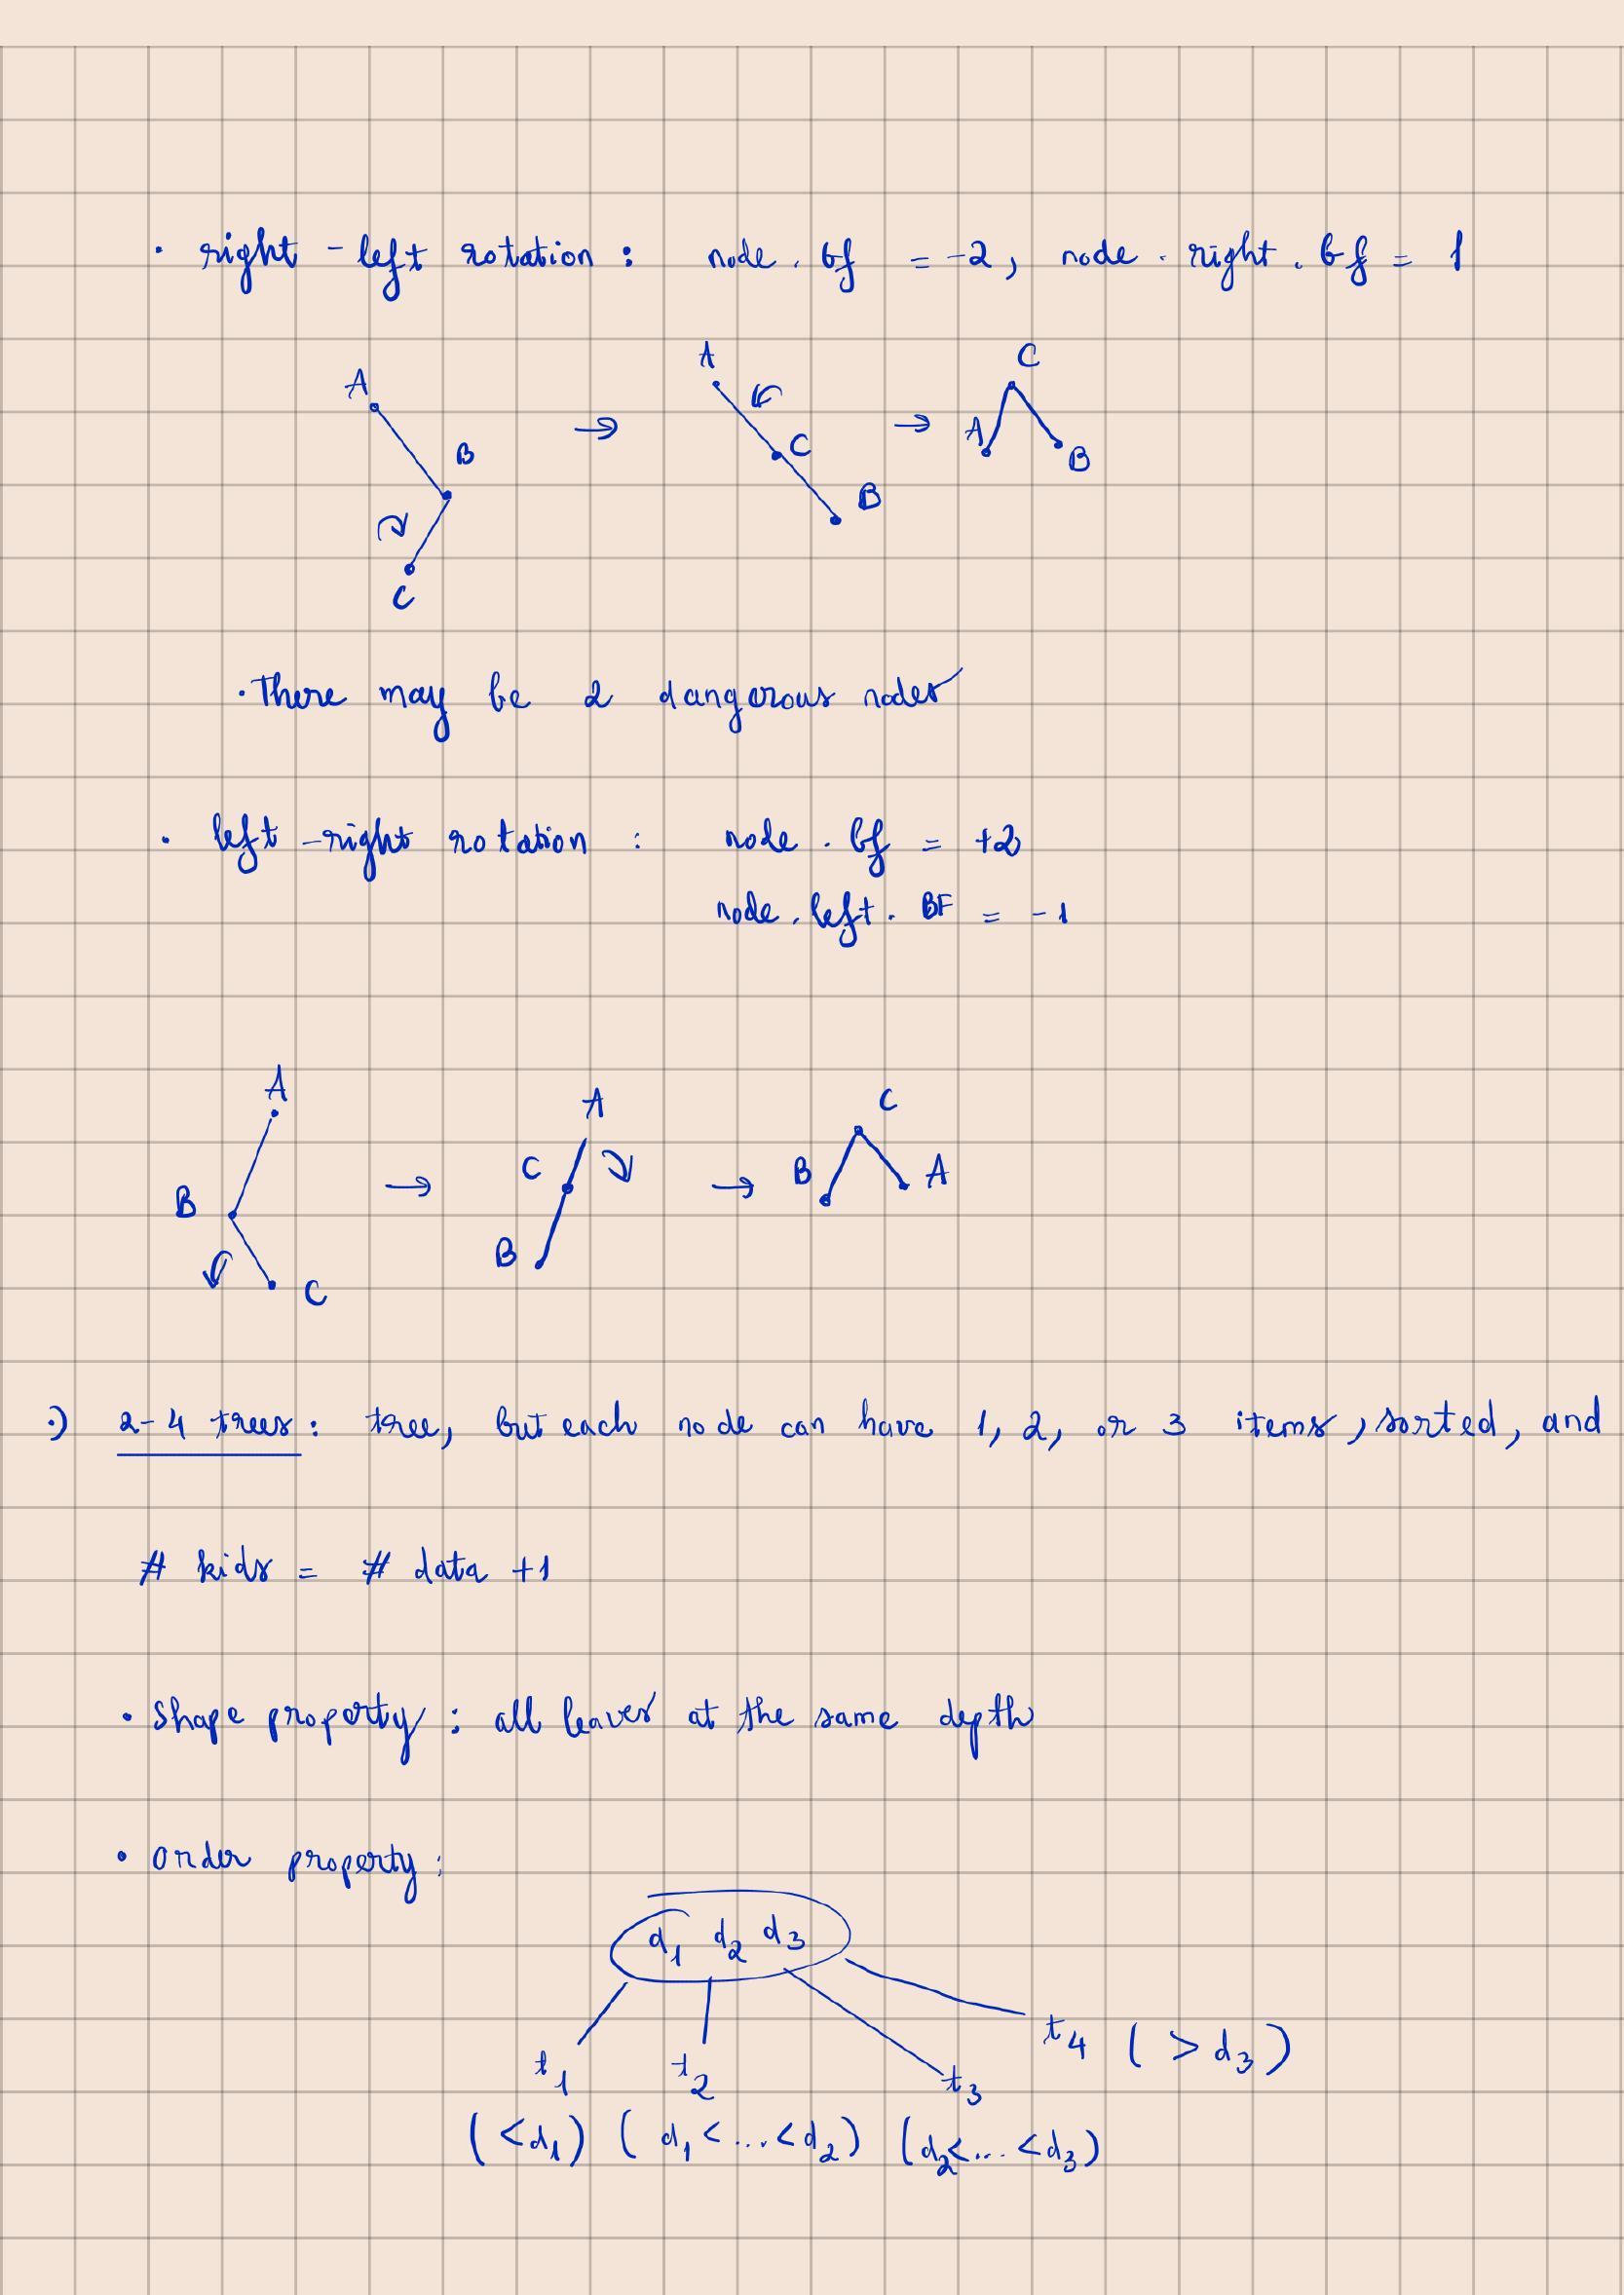 · right - left rotation : node . bf = -2, node . right . bf = 1
A B C → A C B → C A B
· There may be 2 dangerous nodes
· left - right rotation : node . bf = +2
node . left . BF = -1
A B C → A C B → C B A
·) 2-4 trees : tree, but each node can have 1, 2, or 3 items, sorted, and
# kids = # data +1
· shape property : all leaves at the same depth
· order property :
d1 d2 d3
t1 t2 t3 t4 ( > d3 )
( < d1 ) ( d1 < ... < d2 ) ( d2 < ... < d3 )